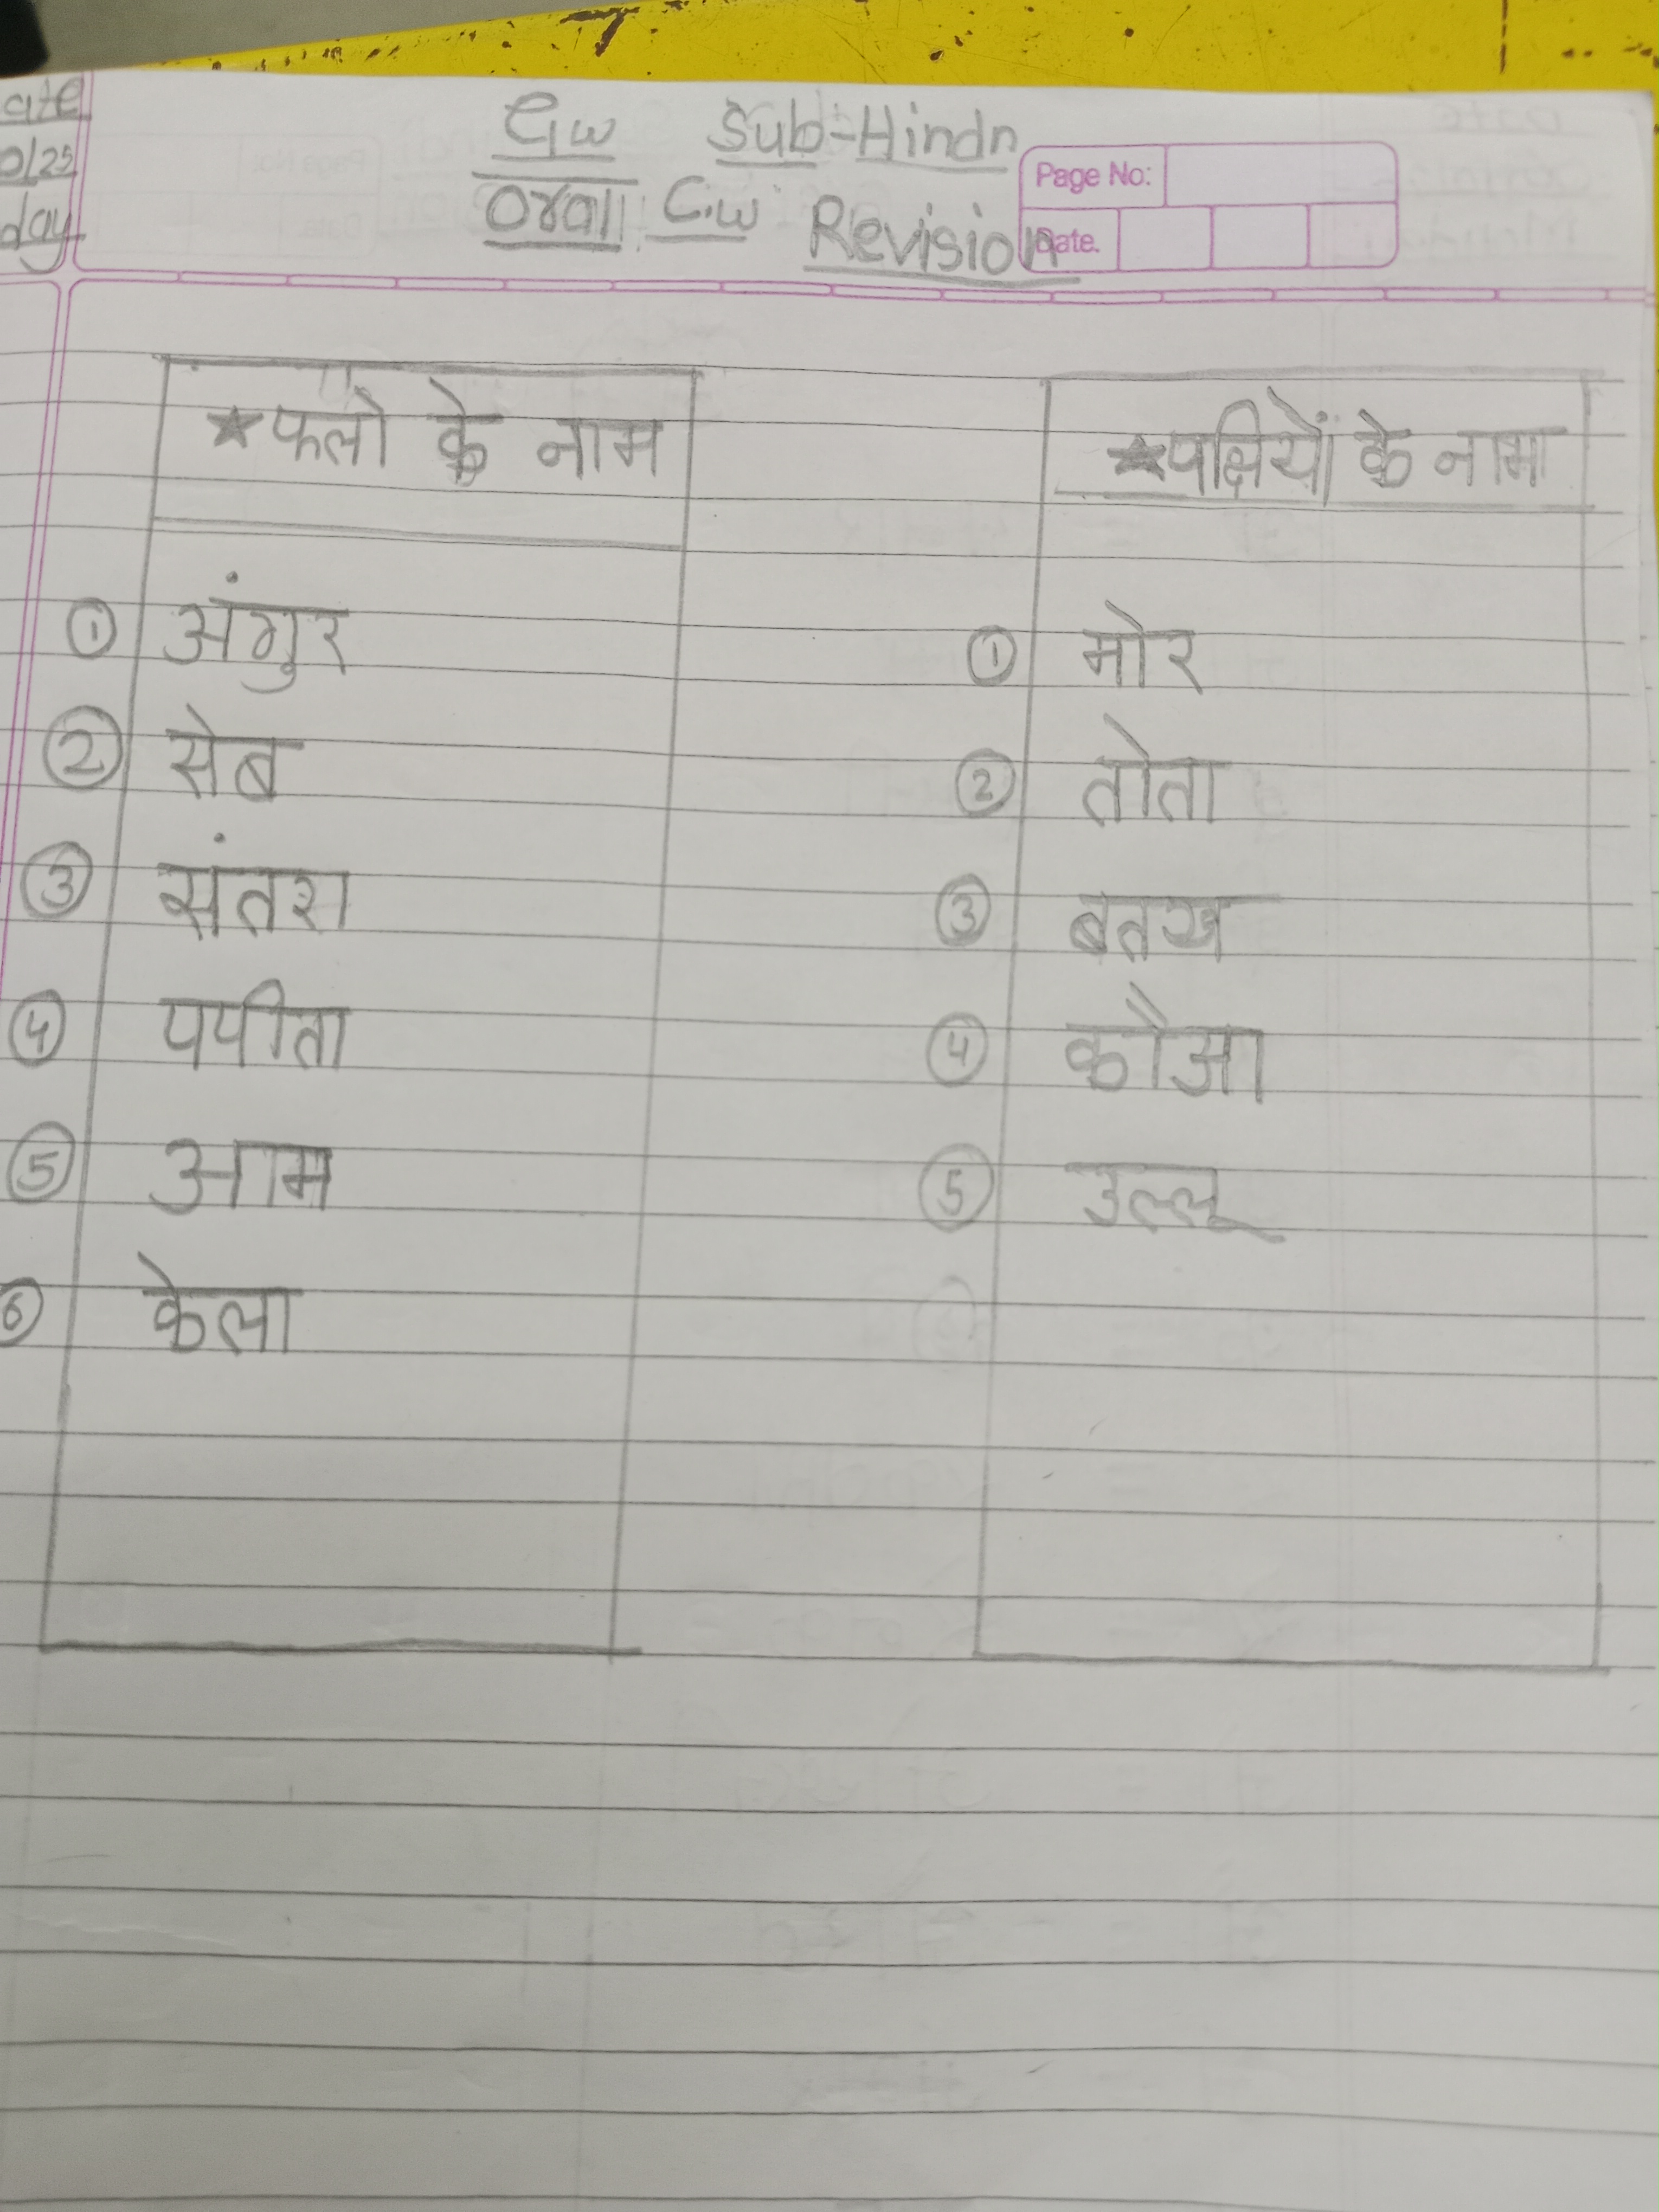 ate
0/25
day
C.w Sub-Hindi
Oral C.w Revision
Page No:
Date.
★फलो के नाम
① अंगुर
② सेब
③ संतरा
④ पपीता
⑤ आम
⑥ केला
★पक्षियों के नाम
① मोर
② तोता
③ बतख
④ कौआ
⑤ उल्लू